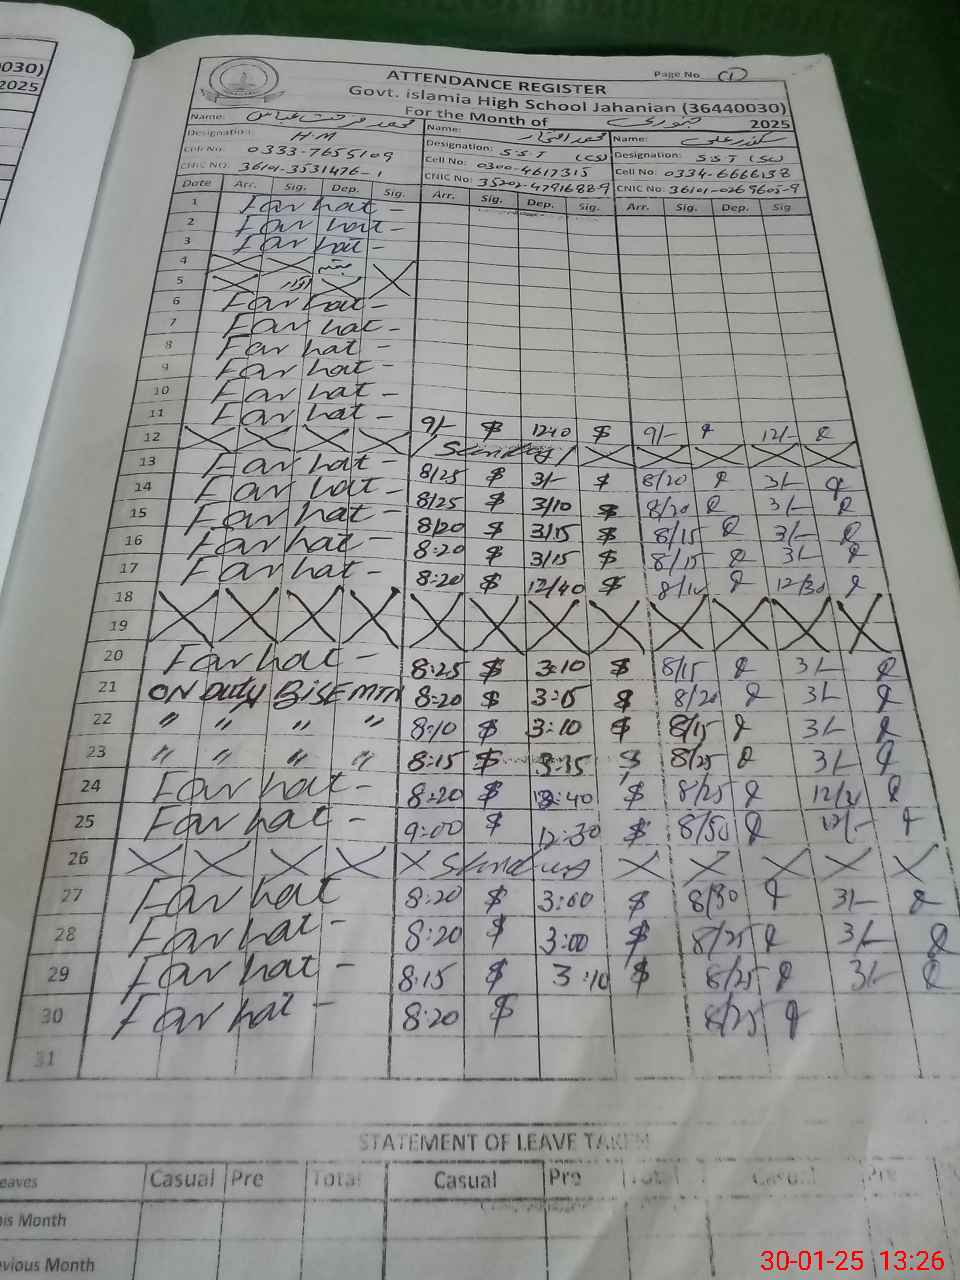 030)
2025
Page No (1)
ATTENDANCE REGISTER
Govt. islamia High School Jahanian (36440030)
For the Month of جنوری 2025
Name: محمد فرحت عباس Name: محمد افتخار Name: سکندر علی
Designation: H.M Designation: S.S.T (CS) Designation: S.S.T (Sc)
Cell No: 0333-7655109 Cell No: 0300-4617315 Cell No: 0334-6666138
CNIC NO: 36101-3531476-1 CNIC No: 35202-4791688-9 CNIC No: 36101-0269605-9
Date Arr. Sig. Dep. Sig. Arr. Sig. Dep. Sig. Arr. Sig. Dep. Sig
1 Farhat
2 Farhat
3 Farhat
4 ہفتہ
5 اتوار
6 Farhat
7 Farhat
8 Farhat
9 Farhat
10 Farhat
11 Farhat 9/- 12:40 9/- 12/-
12 Sunday
13 Farhat 8/25 3/- 8/20 3/-
14 Farhat 8/25 3/10 8/20 3/-
15 Farhat 8/20 3/15 8/15 3/-
16 Farhat 8:20 3/15 8/15 3/-
17 Farhat 8:20 12/40 8/10 12/30
18
19
20 Farhat 8:25 3:10 8/15 3/-
21 ON Duty BISE MTN 8:20 3:15 8/20 3/-
22 〃 〃 〃 〃 8:10 3:10 8/15 3/-
23 〃 〃 〃 〃 8:15 3:35 8/25 3/-
24 Farhat 8:20 12:40 8/25
25 Farhat 9:00 12:30 8/50 12/-
26 Sunday
27 Farhat 8:20 3:00 8/30 3/-
28 Farhat 8:20 3:00 8/25 3/-
29 Farhat 8:15 3:10 8/25 3/-
30 Farhat 8:20 8/25
31
STATEMENT OF LEAVE TAKEN
eaves Casual Pre Total Casual Pre Total Casual Pre
his Month
evious Month
30-01-25 13:26